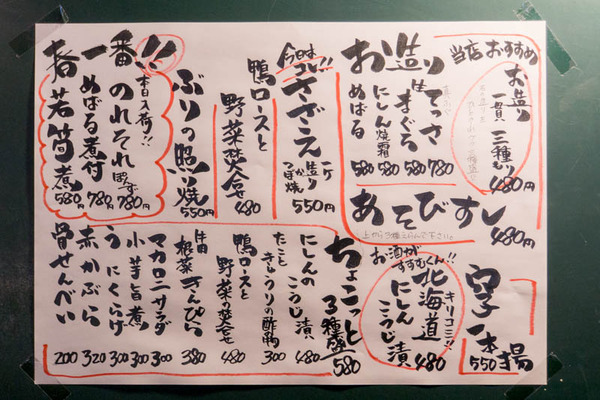 当店おすすめ
お造り
一貫 三種もり
480円
お造り
てっさ 780
生まぐろ 580
にしん焼霜 580
めばる 580
今日はコレ!!
さざえ
一ケ
造りか
つぼ焼
550円
鴨ロースと
野菜焚合せ
480
ぶりの照り焼
550円
春一番!!
本日入荷!!
のれそれ ぽん酢 780円
めばる煮付 780円
若筍煮 580円
あそびすし
480円
上から3種えらんで下さい。
穴子一本揚
550
お酒がすすむくん!!
キリコミ!!
北海道
にしん
こうじ漬
480
ちょこっと
3種盛 580
にしんの
こうじ漬 480
たこと
きゅうりの酢の物 300
鴨ロースと
野菜の焚合せ 480
根菜きんぴら 380
マカロニサラダ 300
小芋旨煮 300
うにくらげ 300
赤かぶら 320
骨せんべい 200